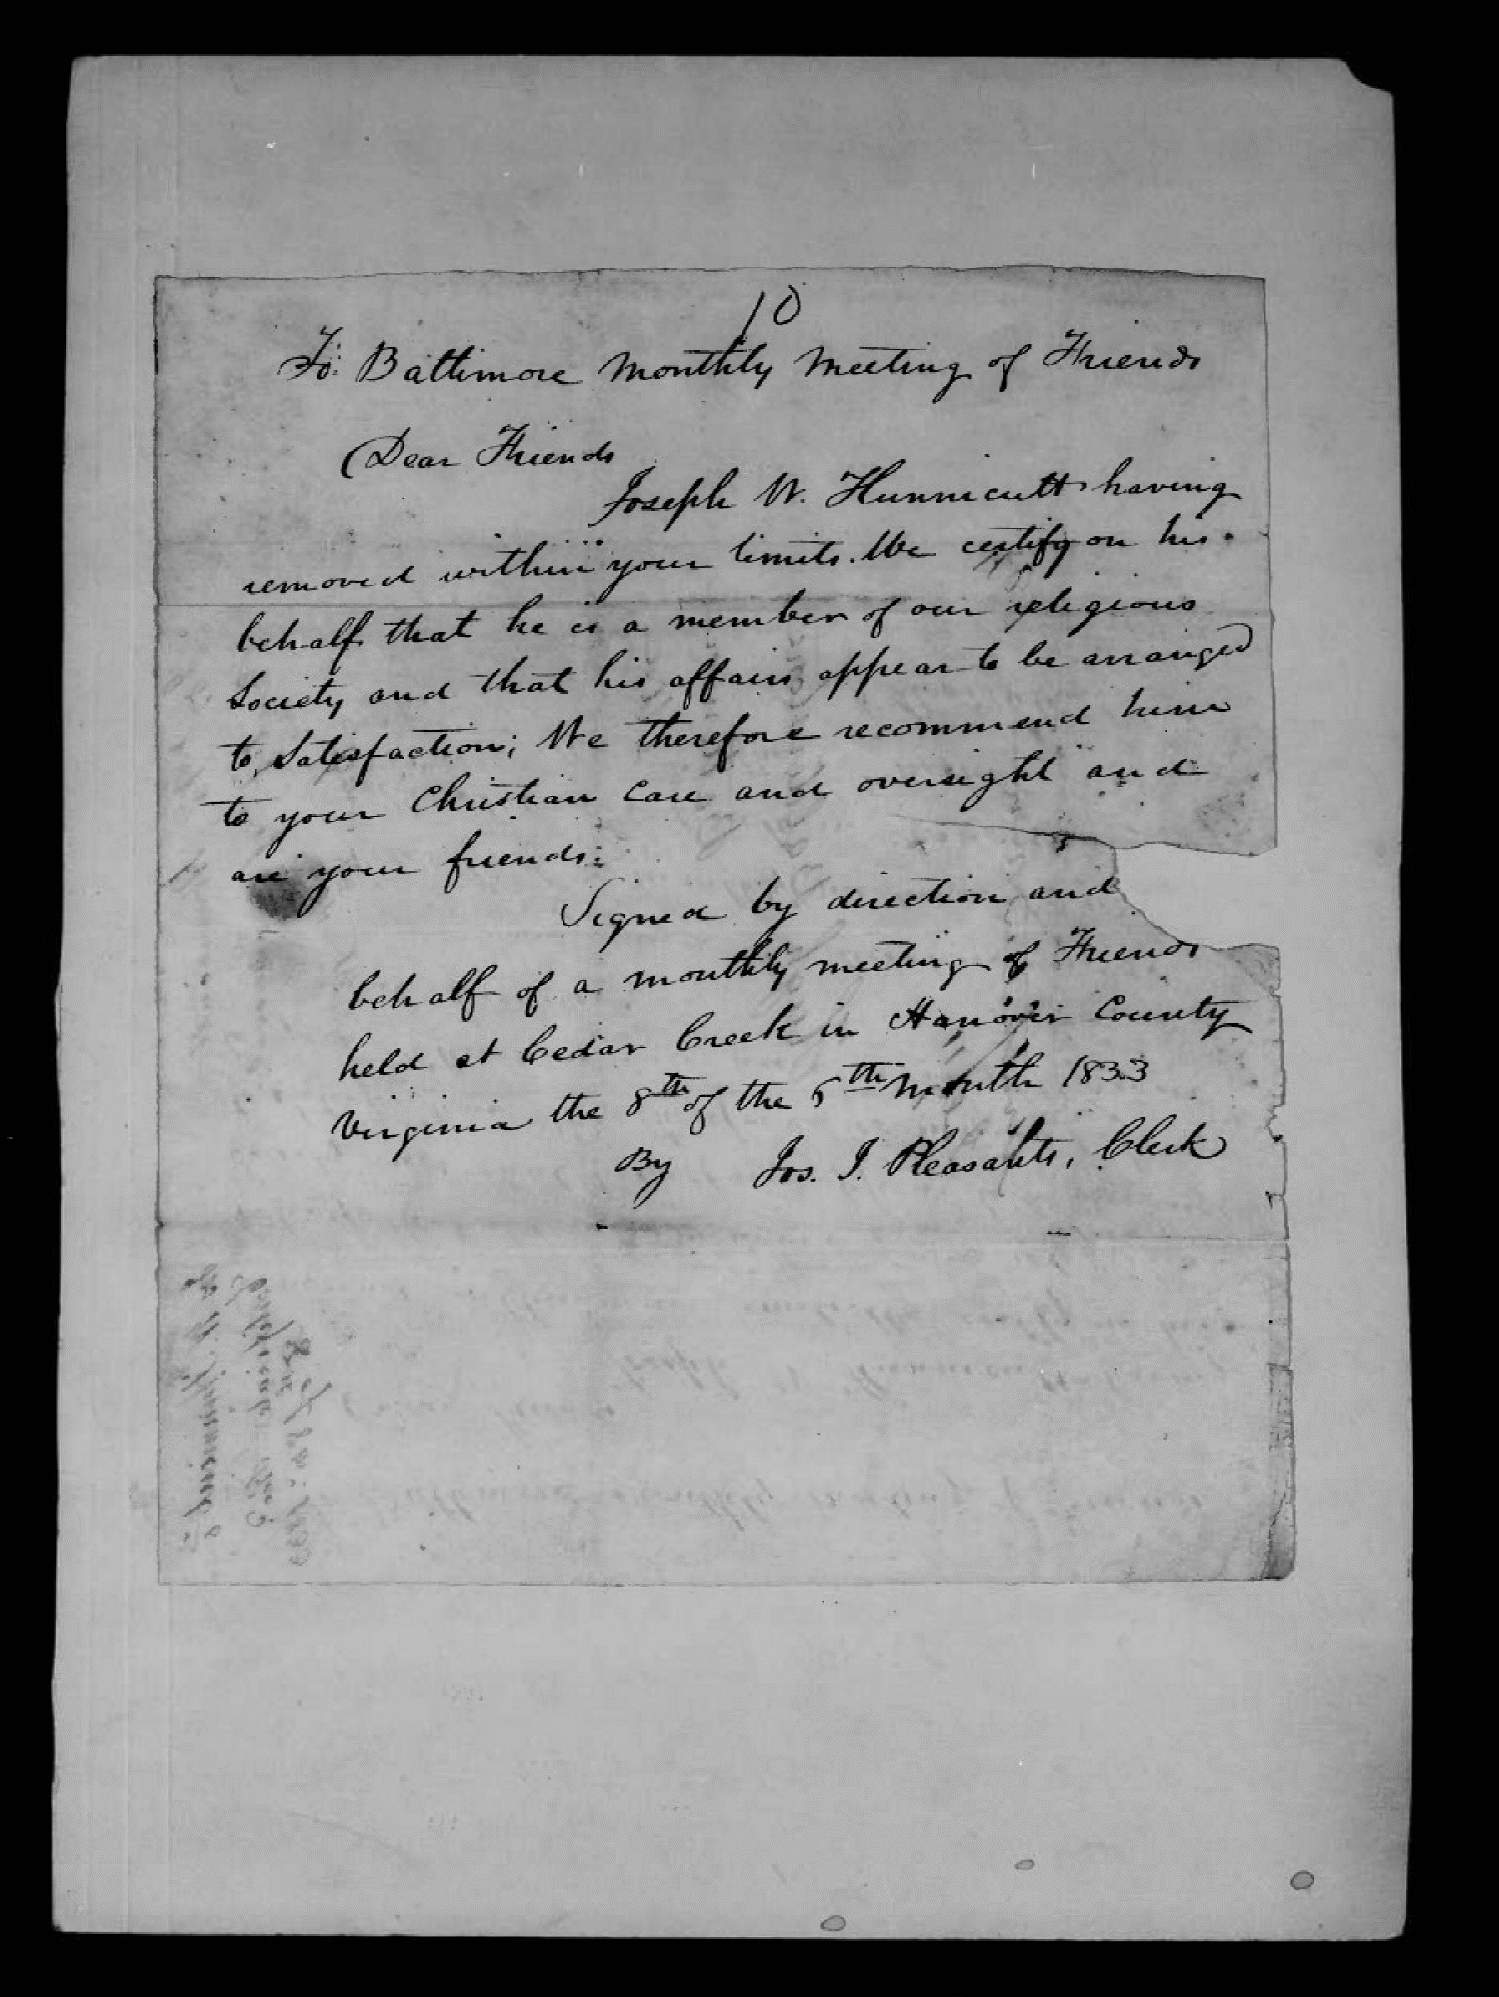 10
To: Baltimore Monthly Meeting of Friends
Dear Friends
Joseph W. Hunnicutt having
removed within your limits. We certify on his
behalf that he is a member of our religious
Society and that his affairs appear to be arranged
to Satisfaction; We therefore recommend him
to your Christian Care and oversight and
are your friends:
Signed by direction and
behalf of a monthly meeting of Friends
held at Cedar Creek in Hanover County
Virginia the 8th of the 6th Month 1833
By Jos. J. Pleasants, Clerk